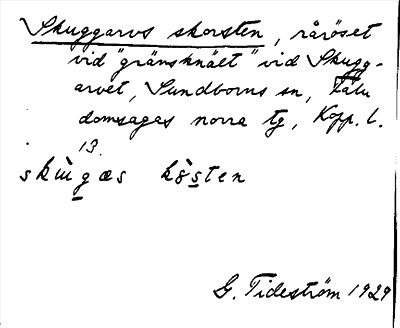 Skuggarvs skorsten, råröset
vid "gränsknäet" vid Skugg-
arvet, Sundborns sn, Falu
domsagas norra tg, Kopp. l.
13.
skùgæs kö̀sten
G. Tideström 1929